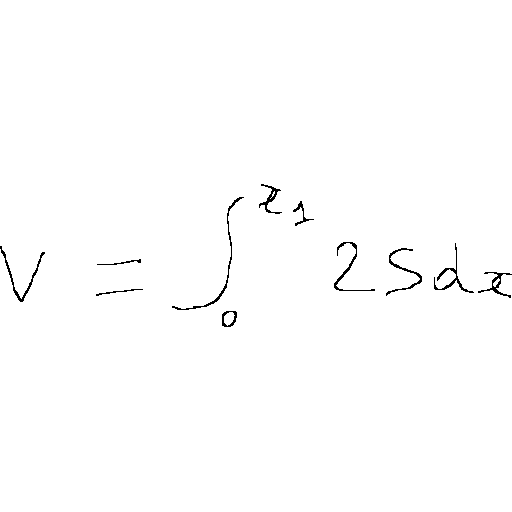 V = \int_0^{x_1} 2 S dx